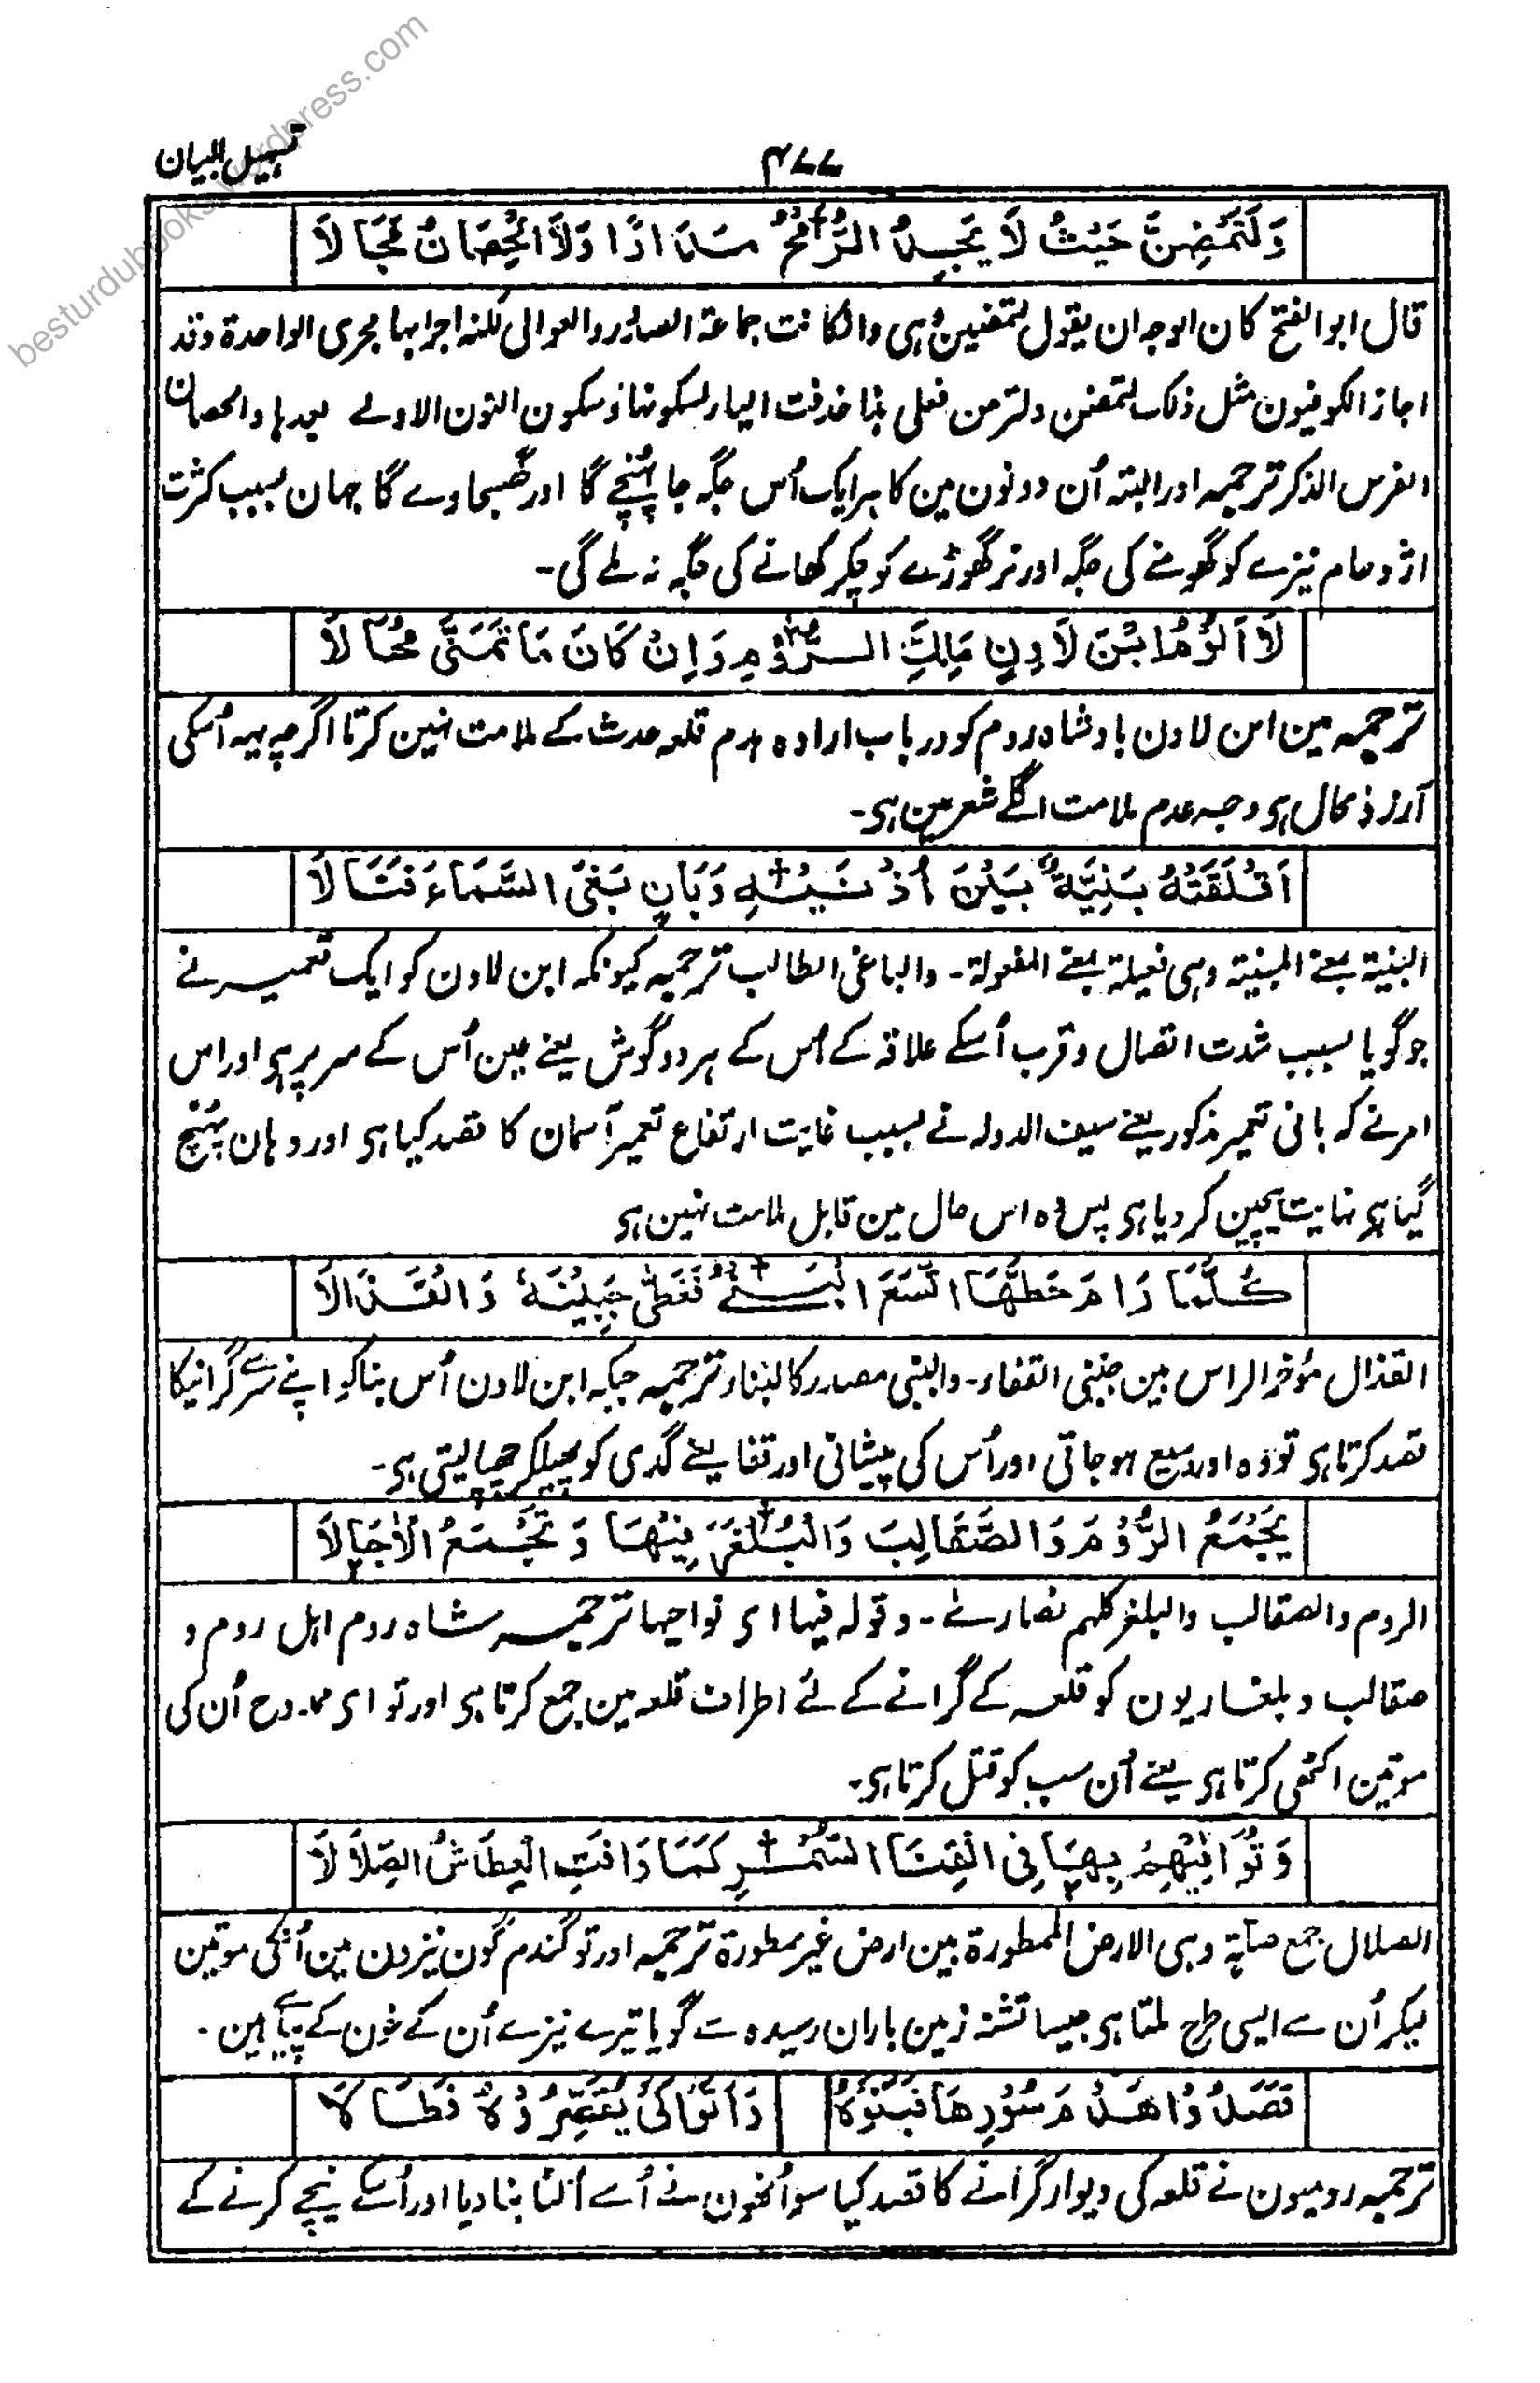 تسہیل البیان
۴۷۷
besturdubooks.wordpress.com
وَلَتَمْضِنَّ حَيْثُ لَا يَجِدُ الرُّمْحُ مَدَارًا وَلَا الْحِصَانُ مَجَالَا
قال ابو الفتح کان الوجہ ان یقول لتمضینّ ہی وان کانت جماعۃ الصدور والعوالی لکنہ اجراہا مجری الواحدۃ وقد
اجاز الکوفیون مثل ذلک لتمضن ولترمن فعلی ہذا حذفت الیاء لسکونہا وسکون النون الاولے بعدہا والحصان
الفرس الذکر ترجمہ اور البتہ اُن دونون مین کا ہر ایک اُس جگہ جا پہنچے گا اور گھسجاوے گا جہان بسبب کثرت
اژدحام نیزے کو گھومنے کی جگہ اور نر گھوڑے کو چکر کھانے کی جگہ نہ ملے گی۔
لَا اَلُوْمُ ابْنَ لَاوِنٍ مَلِكَ الرُّوْمِ وَاِنْ كَانَ مَا تَمَنَّى مُحَالَا
ترجمہ مین ابن لاون بادشاہ روم کو درباب ارادہ ہدم قلعہ حدث کے ملامت نہین کرتا اگرچہ یہہ اُسکی
آرزو محال ہی وجہ عدم ملامت اگلے شعر مین ہی۔
اَقْلَقَتْهُ بَنِيَّةٌ بَيْنَ اُذْنَيْهِ وَبَانٍ بَغَى السَّمَاءَ فَنَالَا
البنیۃ بمعنے المبنیۃ وہی فعیلۃ بمعنے المفعولۃ۔ والباغی الطالب ترجمہ کیونکہ ابن لاون کو ایک تعمیر نے
جو گویا بسبب شدت اتصال و قرب اُسکے علاقہ کے اُس کے ہر دو گوش یعنے عین اُس کے سر پر ہی اور اس
امر نے کہ بانی تعمیر مذکور یعنے سیف الدولہ نے بسبب غایت ارتفاع تعمیر آسمان کا قصد کیا ہی اور وہان پہنچ
گیا ہی نہایت بیچین کر دیا ہی پس وہ اس حال مین قابل ملامت نہین ہی
كُلَّمَا رَامَ حَطَّهَا اتَّسَعَ الْبَنْيُ فَغَطَّى جَبِيْنَهُ وَالْقَذَالَا
القذال مؤخر الراس بین جنبی القفاء۔ والبنی مصدر کالبناء ترجمہ جبکہ ابن لاون اُس بنا کو اپنے سر سے گرانیکا
قصد کرتا ہی تو وہ اور وسیع ہو جاتی اور اُس کی پیشانی اور قفا یعنے گدی کو پھیلکر چھپا لیتی ہی۔
يَجْمَعُ الرُّوْمَ وَالصَّقَالِبَ وَالْبُلْغَرَ فِيْهَا وَتَجْمَعُ الْاٰجَالَا
الروم والصقالب والبلغر کلہم نصارےٰ۔ وقولہ فیہا ای نواحیہا ترجمہ شاہ روم اہل روم و
صقالب و بلغاریون کو قلعہ کے گرانے کے لئے اطراف قلعہ مین جمع کرتا ہی اور تو ای ممدوح اُن کی
موتین اکٹھی کرتا ہی یعنے اُن سب کو قتل کرتا ہی۔
وَتُوَافِيْهِمُ بِهَا فِى الْقَنَا السُّمْرِ كَمَا وَافَتِ الْعِطَاشُ الصِّلَالَا
الصلال جمع صلّۃ وہی الارض الممطورۃ بین ارض غیر ممطورۃ ترجمہ اور تو گندم گون نیزون مین اُنکی موتین
لیکر اُن سے ایسی طرح ملتا ہی جیسا تشنہ زمین باران رسیدہ سے گویا تیرے نیزے اُن کے خون کے پیاسے ہین۔
قَصَدُوْا هَدْمَ سُوْرِهَا فَبَنَوْهُ وَاَتَوْا كَىْ يُقَصِّرُوْهُ فَطَالَا
ترجمہ رومیون نے قلعہ کی دیوار گرانے کا قصد کیا سو اُنھون نے اُسے اُلٹا بنا دیا اور اُسکے نیچے کرنے کے